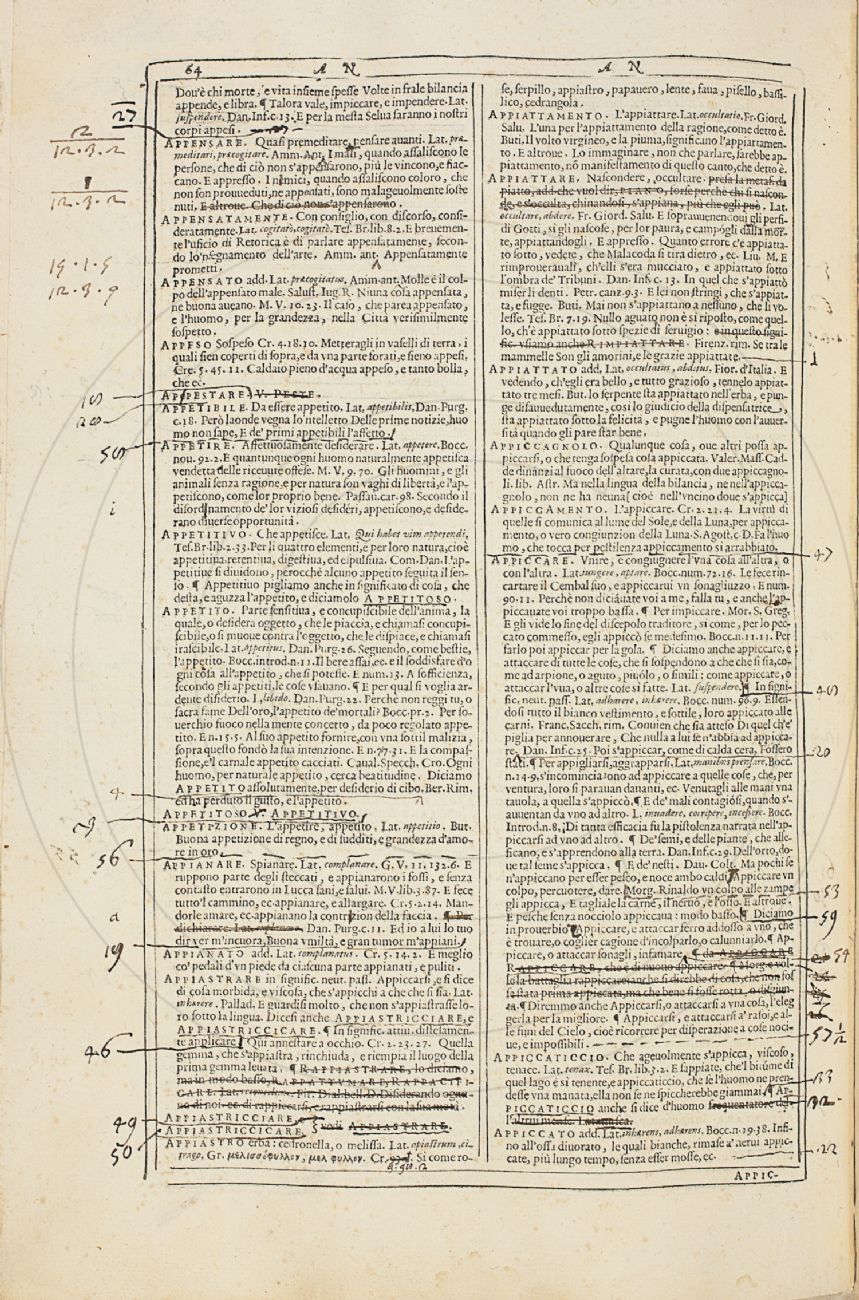 64 A N A N
Dov'è chi morte, e vita insieme spesse Volte in frale bilancia
appende, e libra. ¶ Talora vale, impiccare, e impendere. Lat.
suspendere. Dan. Inf. c. 13. E per la mesta Selua saranno i nostri
corpi appesi.
27
APPENSARE. Quasi premeditare, pensare auanti. Lat. præ-
meditari, præcogitare. Amm. Ant. I mali, quando assaliscono le
persone, che di ciò non s'appensarono, più le vincono, e fiac-
cano. E appresso. I nimici, quando assaliscono coloro, che
non son proueduti, ne appensati, sono malageuolmente soste
nuti. E altroue. Che di ciò non s'appensarono.
2
12.3.2
12.3.2
APPENSATAMENTE. Con consiglio, con discorso, consi-
deratamente. Lat. cogitatò, cogitatè. Tes. Br. lib. 8.2. E breuemen-
te l'uficio di Retorica è di parlare appensatamente, secon-
do lo 'nsegnamento dell'arte. Amm. ant. Appensatamente
prometti.
19.1.5
12.3.9
APPENSATO add. Lat. præcogitatus. Amm. ant. Molle è il col-
po dell'appensato male. Salust. Iug. R. Niuna cosa appensata,
ne buona aueano. M. V. 10. 23. Il caso, che parea appensato,
e l'huomo, per la grandezza, nella Città verisimilmente
sospetto.
APPESO Sospeso Cr. 4. 18. 10. Metteragli in vaselli di terra, i
quali sien coperti di sopra, e da vna parte forati, e sieno appesi.
Cre. 5. 45. 11. Caldaio pieno d'acqua appeso, e tanto bolla,
che ec.
APPESTARE. V. PESTE.
APPETIBILE. Da essere appetito. Lat. appetibilis. Dan. Purg.
c. 18. Però laonde vegna lo'ntelletto Delle prime notizie, huo
mo non sape, E de' primi appetibili l'affetto.
APPETIRE. Affettuosamente desiderare. Lat. appetere. Bocc.
nou. 92. 2. E quantunque ogni huomo naturalmente appetisca
vendetta delle riceuute offese. M. V. 9. 70. Gli huomini, e gli
animali senza ragione, e per natura son vaghi di libertà, e l'ap-
petiscono, come lor proprio bene. Passau. car. 98. Secondo il
disordinamento de' lor viziosi desidéri, appetiscono, e deside-
rano diuerse opportunità.
APPETITIVO. Che appetisce. Lat. Qui habet vim appetendi.
Tes. Br. lib. 2. 33. Per li quattro elementi, e per loro natura, cioè
appetitiua, retentiua, digestiua, ed espulsiua. Com. Dan. L'ap-
petitiue si diuidono, perocchè alcuno appetito seguita il sen-
so. ¶ Appetitiuo pigliamo anche in significato di cosa, che
desta, e aguzza l'appetito, e diciamolo APPETITOSO.
APPETITO. Parte sensitiua, e concupiscibile dell'anima, la
quale, o desidera oggetto, che le piaccia, e chiamasi concupi-
scibile, o si muoue contra l'oggetto, che le dispiace, e chiamasi
irascibile. Lat. appetitus. Dan. Purg. 26. Seguendo, come bestie,
l'appetito. Bocc. introd. n. 11. Il bere assai, ec. e il soddisfare d'o
gni cosa all'appetito, che si potesse. E num. 13. A sofficienza,
secondo gli appetiti, le cose vsauano. ¶ E per qual si voglia ar-
dente disiderio. L. libido. Dan. Purg. 22. Perchè non reggi tu, o
sacra fame Dell'oro, l'appetito de' mortali? Bocc. pr. 2. Per so-
uerchio fuoco nella mente concetto, da poco regolato appe-
tito. E n. 15. 5. Al suo appetito fornire, con vna sottil malizia,
sopra questo fondò la sua intenzione. E n. 77. 31. E la compas-
sione, e 'l carnale appetito cacciati. Caual. Specch. Cro. Ogni
huomo, per naturale appetito, cerca beatitudine. Diciamo
APPETITO assolutamente, per desiderio di cibo. Ber. Rim.
Ed ha perduto il gusto, e l'appetito.
APPETITOSO. V. APPETITIVO.
APPETIZIONE. L'appetire, appetito. Lat. appetitio. But.
Buona appetizione di regno, e di sudditi, e grandezza d'amo-
re in oro.
56
APPIANARE. Spianare. Lat. complanare. G. V. 11. 132. 6. E
ruppono parte degli steccati, e appianarono i fossi, e senza
contasto entrarono in Lucca sani, e salui. M. V. lib. 3. 87. E fece
tutto 'l cammino, ec. appianare, e allargare. Cr. 5. 2. 14. Man-
dorle amare, ec. appianano la contrizion della faccia. ¶ Per
dichiarare. Lat. explanare. Dan. Purg. c. 11. Ed io a lui lo tuo
dir ver m'incuora, Buona vmiltà, e gran tumor m'appiani.
19
APPIANATO add. Lat. complanatus. Cr. 5. 14. 2. E meglio
co' pedali d'vn piede da ciascuna parte appianati, e puliti.
APPIASTRARE in signific. neut. pass. Appiccarsi, e si dice
di cosa morbida, e viscosa, che s'appicchi a che che si sia. Lat.
inhærere. Pallad. E guardisi molto, che non s'appiastrasse lo-
ro sotto la lingua. Dicesi anche APPIASTRICCIARE, e
APPIASTRICCICARE. ¶ In signific. attiu. distesamen-
te applicare. Qui annestare a occhio. Cr. 2. 23. 27. Quella
gemma, che s'appiastra, rinchiuda, e riempia il luogo della
prima gemma leuata. ¶ RAPPIASTRARE, lo diciamo,
ma in modo basso,
46
APPIASTRICCIARE, e
APPIASTRICCICARE, vedi APPIASTRARE.
49
50
APPIASTRO erba: cedronella, o melissa. Lat. apiastrum, ci-
trago. Gr. μελισσόφυλλον, μελίφυλλον. Cr. Si come ro-
se, serpillo, appiastro, papauero, lente, faua, pisello, bassi-
lico, cedrangola.
APPIATTAMENTO. L'appiattare. Lat. occultatio. Fr. Giord.
Salu. L'una per l'appiattamento della ragione, come detto è.
Buti. Il volto virgineo, e la piuma, significano l'appiattamen-
to. E altroue. Lo immaginare, non che parlare, sarebbe ap-
piattamento, nō manifestamento di quello canto, che detto è.
APPIATTARE. Nascondere, occultare. presa la metaf. da
piatto, add. che vuol dir, PIANO, forse perchè chi si nascon-
de, e s'occulta, chinandosi, s'appiana, più che egli può. Lat.
occultare, abdere. Fr. Giord. Salu. E soprauuenendoui gli perfi-
di Gotti, si gli nascose, per lor paura, e campógli dalla mor-
te, appiattandogli. E appresso. Quanto errore c'è appiatta-
to sotto, vedete, che Malacoda si tira dietro, ec. Liu. M. E
rimprouerauasi, ch'elli s'era mucciato, e appiattato sotto
l'ombra de' Tribuni. Dan. Inf. c. 13. In quel che s'appiattò
miser li denti. Petr. canz. 9. 3. E lei non stringi, che s'appiat-
ta, e fugge. Buti. Mai non s'appiattano a nessuno, che li vo-
lesse. Tes. Br. 7. 19. Nullo aguato non è si riposto, come quel-
lo, ch'è appiattato sotto spezie di seruigio: e in questo signi-
fic. vsiamo anche RIMPIATTARE. Firenz. rim. Se tra le
mammelle Son gli amorini, e le grazie appiattate.
APPIATTATO add. Lat. occultatus, abditus. Fior. d'Italia. E
vedendo, ch'egli era bello, e tutto grazioso, tennelo appiat-
tato tre mesi. But. lo serpente sta appiattato nell'erba, e pun-
ge disauuedutamente, così lo giudicio della dispensatrice,
sta appiattato sotto la felicità, e pugne l'huomo con l'auuer-
sità quando gli pare star bene.
APPICCAGNOLO. Qualunque cosa, oue altri possa ap-
piccarsi, o che tenga sospesa cosa appiccata. Valer. Mass. Cad-
de dinãnzi al fuoco dell'altare, la curata, con due appiccagno-
li. lib. Astr. Ma nella lingua della bilancia, ne nell'appicca-
gnolo, non ne ha neuna [cioè nell'vncino doue s'appicca]
APPICCAMENTO. L'appiccare. Cr. 2. 21. 4. La virtù di
quelle si comunica al lume del Sole, e della Luna, per appicca-
mento, o vero congiunzion della Luna. S. Agost. C. D. Fa l'huo
mo, che tocca per pestilenza appiccamento si arrabbiato.
47
APPICCARE. Vnire, e congiugnere l'vna cosa all'altra, o
con l'altra. Lat. iungere, aptare. Bocc. num. 72. 16. Le fece rin-
cartare il Cembal suo, e appiccarui vn sonagliuzzo. E num.
90. 11. Perchè non diciauate voi a me, falla tu, e anche l'ap-
piccauate voi troppo bassa. ¶ Per impiccare. Mor. S. Greg.
E gli vide lo fine del discepolo traditore, si come, per lo pec-
cato commesso, egli appiccò se medesimo. Bocc. n. 11. 11. Per
farlo poi appiccar per la gola. ¶ Diciamo anche appiccare, e
attaccare di tutte le cose, che si sospendono a che che si sia, co-
me ad arpione, o aguto, piuòlo, o simili: come appiccare, o
attaccar l'vua, o altre cose si fatte. Lat. suspendere. ¶ In signi-
fic. neut. pass. Lat. adhærere, inhærere. Bocc. num. 96. 9. Essen-
dosi tutto il bianco vestimento, e sottile, loro appiccato alle
carni. Franc. Sacch. rim. Conuien che sia atteso Di quel ch'e'
piglia per annouerare, Che nulla a lui se n'abbia ad appicca-
re. Dan. Inf. c. 25. Poi s'appiccar, come di calda cera, Fossero
stati. ¶ Per appigliarsi, aggrapparsi. Lat. manibus prensare. Bocc.
n. 14. 9. s'incominciarono ad appiccare a quelle cose, che, per
ventura, loro si parauan dauanti, ec. Venutagli alle mani vna
tauola, a quella s'appiccò. ¶ E de' mali contagiosi, quando s'-
auuentan da vno ad altro. L. inuadere, corripere, incessere. Bocc.
Introd. n. 8. Di tanta efficacia fu la pistolenza narrata nell'ap-
piccarsi ad vno ad altro. ¶ De' semi, e delle piante, che alle-
ficano, e s'apprendono alla terra. Dan. Inf. c. 29. Dell'orto, do-
ue tal seme s'appicca. ¶ E de' nesti. Dau. Colt. Ma pochi se
n'appiccano per esser pesco, e noce ambo caldi. Appiccare vn
colpo, percuotere, dare. Morg. Rinaldo vn colpo alle zampe
gli appicca, E tagliale la carne, il neruo, e l'osso. E altroue.
E pesche senza nocciolo appiccaua: modo basso. ¶ Diciamo
in prouerbio, Appiccare, e attaccar ferro addosso a vno, che
è trouare, o coglier cagione d'incolparlo, o calunniarlo. ¶ Ap-
piccare, o attaccar sonagli, infamare. ¶ da APPICCARE
RAPPICCARE, che è di nuouo appiccare. ¶ Morg. e vol-
se la battaglia rappiccare
¶ Diremmo anche Appiccarsi, o attaccarsi a vna cosa, l'eleg
gerla per la migliore. ¶ Appiccarsi, e attaccarsi a' rasoi, e al-
le funi del Cielo, cioè ricorrere per disperazione a cose noci-
ue, e impossibili.
53
59
57 1/2
APPICCATICCIO. Che ageuolmente s'appicca, viscoso,
tenace. Lat. tenax. Tes. Br. lib. 3. 2. E sappiate, che 'l bitume di
quel lago è si tenente, e appiccaticcio, che se l'huomo ne pren-
desse vna manata, ella non se ne spiccherebbe giammai. ¶ Ap-
PICCATICCIO anche si dice d'huomo frequentatore del
l'altrui mense.
APPICCATO add. Lat. inhærens, adhærens. Bocc. n. 19. 38. Infi-
no all'ossa diuorato, le quali bianche, rimase a' nerui appic-
cate, più lungo tempo, senza esser mosse, ec.
22
APPIC-